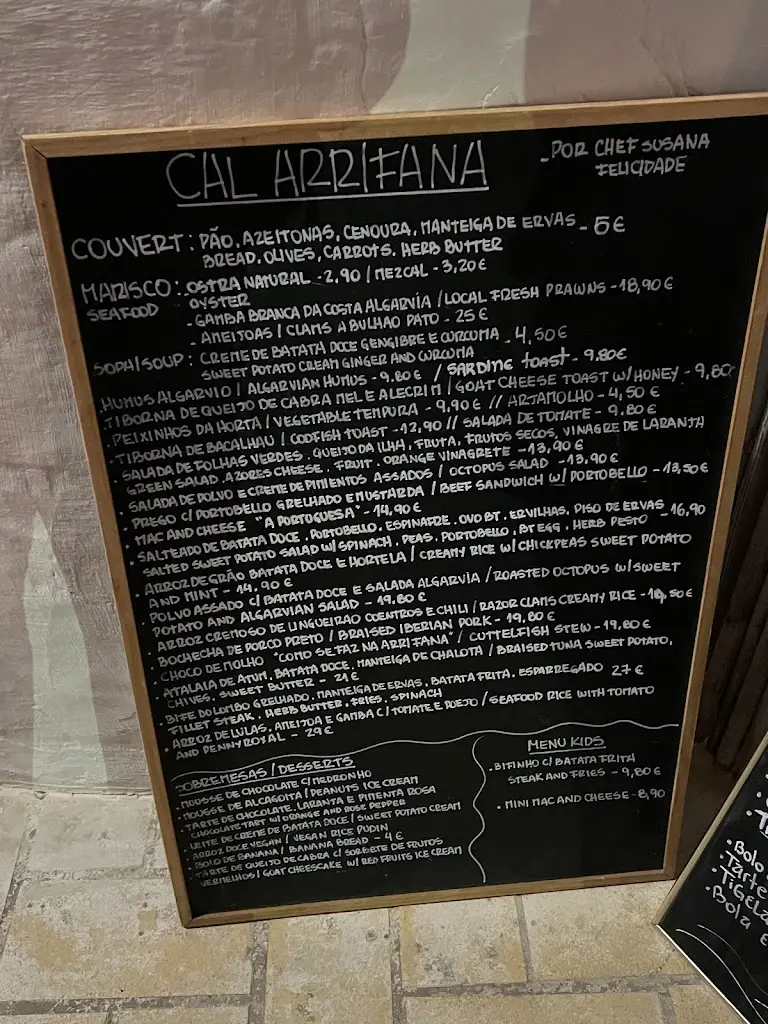 CAL ARRIFANA
- POR CHEF SUSANA
FELICIDADE
COUVERT: PÃO, AZEITONAS, CENOURA, MANTEIGA DE ERVAS - 5€
BREAD, OLIVES, CARROTS, HERB BUTTER
MARISCO: OSTRA NATURAL - 2,90 / MEZCAL - 3,20€
SEAFOOD OYSTER
- GAMBA BRANCA DA COSTA ALGARVIA / LOCAL FRESH PRAWNS - 18,90€
- AMEIJOAS / CLAMS A BULHAO PATO - 25€
SOPA/SOUP: CREME DE BATATA DOCE GENGIBRE E CURCUMA - 4,50€
SWEET POTATO CREAM GINGER AND CURCUMA
. HUMUS ALGARVIO / ALGARVIAN HUMUS - 9.80€ / SARDINE TOAST - 9.80€
. TIBORNA DE QUEIJO DE CABRA MEL E ALECRIM / GOAT CHEESE TOAST W/ HONEY - 9,80
. PEIXINHOS DA HORTA / VEGETABLE TEMPURA - 9,90€ // ARJAMOLHO - 4,50€
. TIBORNA DE BACALHAU / CODFISH TOAST - 12,90 // SALADA DE TOMATE - 9.80€
. SALADA DE FOLHAS VERDES. QUEIJO DA ILHA, FRUTA, FRUTOS SECOS, VINAGRE DE LARANJA
GREEN SALAD. AZORES CHEESE. FRUIT. ORANGE VINAGRETE - 13,90€
. SALADA DE POLVO E CREME DE PIMENTOS ASSADOS / OCTOPUS SALAD - 13,90€
. PREGO C/ PORTOBELLO GRELHADO E MUSTARDA / BEEF SANDWICH W/ PORTOBELLO - 13,50€
. MAC AND CHEESE "A PORTUGUESA" - 14,90€
. SALTEADO DE BATATA DOCE, PORTOBELLO, ESPINAFRE, OVO BT, ERVILHAS, PISO DE ERVAS - 16,90
SALTED SWEET POTATO SALAD W/ SPINACH, PEAS, PORTOBELLO, BT EGG, HERB PESTO
. ARROZ DE GRÃO BATATA DOCE E HORTELA / CREAMY RICE W/ CHICKPEAS SWEET POTATO
AND MINT - 14,90€
. POLVO ASSADO C/ BATATA DOCE E SALADA ALGARVIA / ROASTED OCTOPUS W/ SWEET
POTATO AND ALGARVIAN SALAD - 19.80€
. ARROZ CREMOSO DE LINGUEIRAO COENTROS E CHILI / RAZOR CLAMS CREAMY RICE - 50€
. BOCHECHA DE PORCO PRETO / BRAISED IBERIAN PORK - 19,80€
. CHOCO DE MOLHO "COMO SE FAZ NA ARRIFANA" / CUTTELFISH STEW - 19,80€
. ATALAIA DE ATUM, BATATA DOCE, MANTEIGA DE CHALOTA / BRAISED TUNA SWEET POTATO,
CHIVES, SWEET BUTTER - 21€
. BIFE DO LOMBO GRELHADO, MANTEIGA DE ERVAS, BATATA FRITA, ESPARREGADO 27€
FILLET STEAK, HERB BUTTER, FRIES, SPINACH
. ARROZ DE LULAS, AMEIJOA E GAMBA C/ TOMATE E POEJO / SEAFOOD RICE WITH TOMATO
AND PENNYROYAL - 29€
SOBREMESAS / DESSERTS
. MOUSSE DE CHOCOLATE C/ MEDRONHO
. MOUSSE DE ALCAGOITA / PEANUTS ICE CREAM
. TARTE DE CHOCOLATE, LARANJA E PIMENTA ROSA
CHOCOLATE TART W/ ORANGE AND ROSE PEPPER
. LEITE DE CREME DE BATATA DOCE / SWEET POTATO CREAM
. ARROZ DOCE VEGAN / VEGAN RICE PUDIN
. BOLO DE BANANA / BANANA BREAD - 4€
. TARTE DE QUEIJO DE CABRA C/ SORBETE DE FRUTOS
VERMELHOS / GOAT CHEESCAKE W/ RED FRUITS ICE CREAM
MENU KIDS
. BIFINHO C/ BATATA FRITA
STEAK AND FRIES - 9,80€
. MINI MAC AND CHEESE - 8,90
. Bolo
. Tarte
. Tigela
. Bola